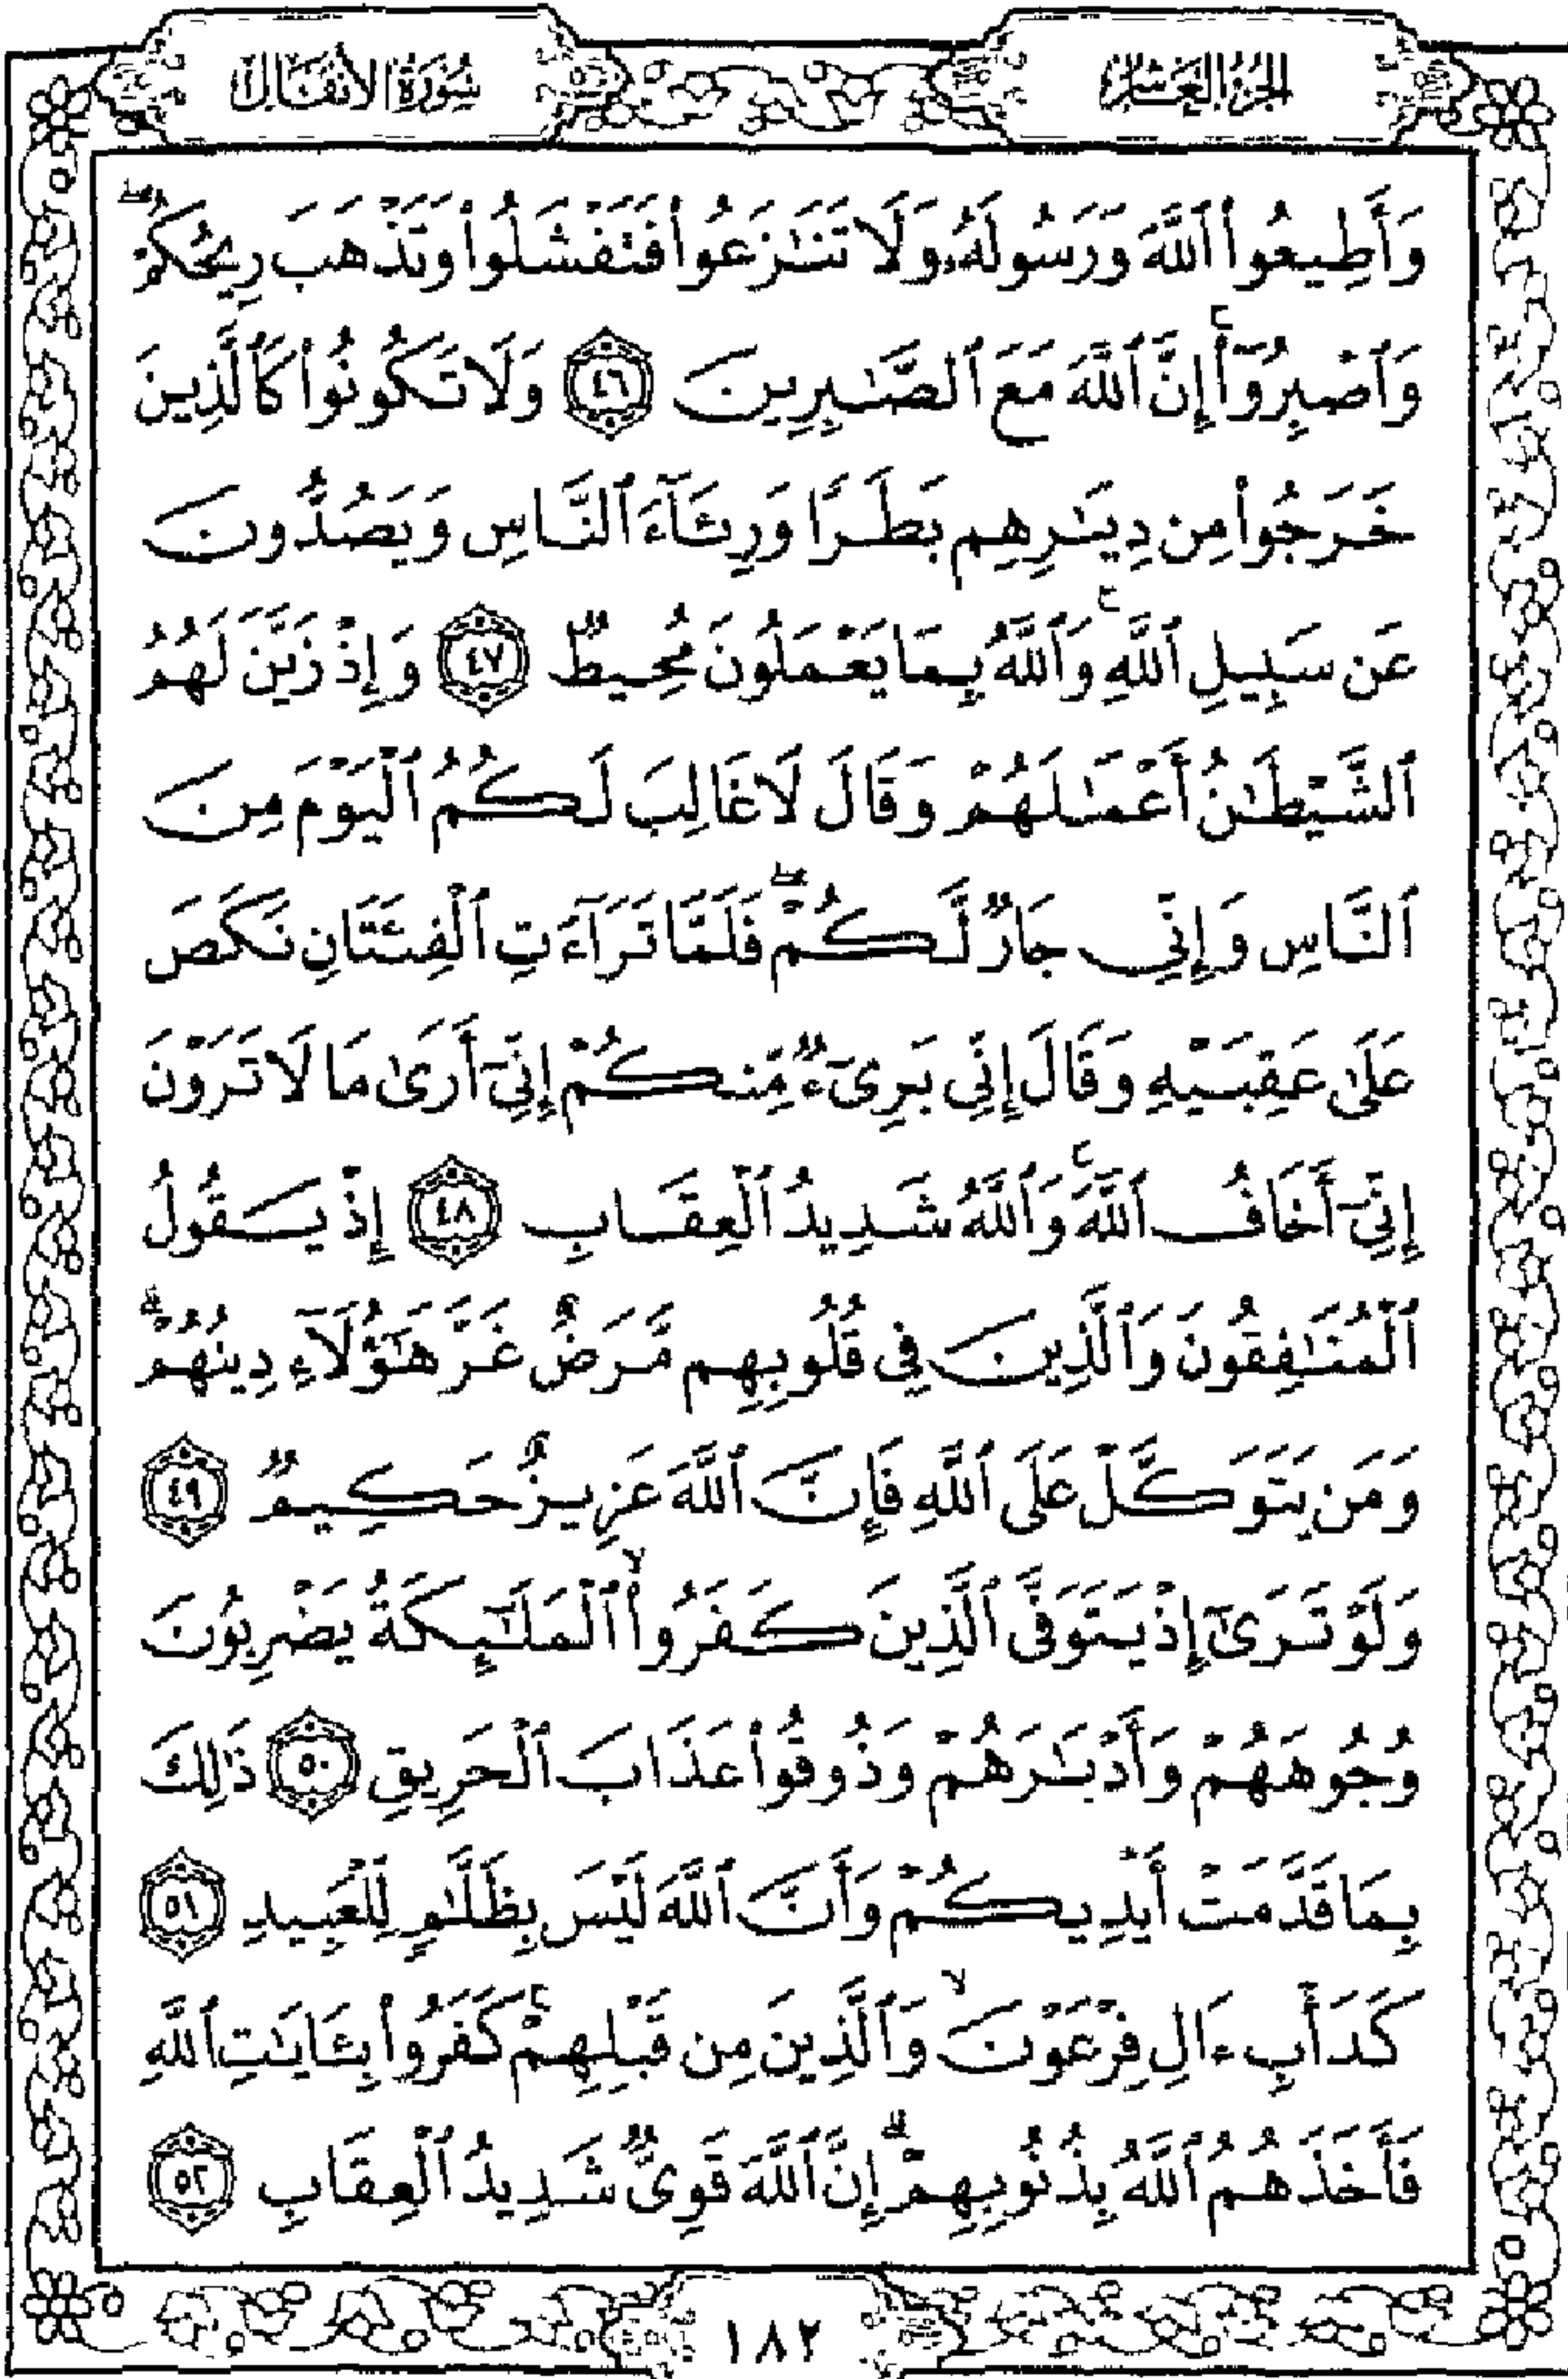 الجزء العاشر
سورة الأنفال
وَأَطِيعُوا۟ ٱللَّهَ وَرَسُولَهُۥ وَلَا تَنَـٰزَعُوا۟ فَتَفْشَلُوا۟ وَتَذْهَبَ رِيحُكُمْ ۖ
وَٱصْبِرُوٓا۟ ۚ إِنَّ ٱللَّهَ مَعَ ٱلصَّـٰبِرِينَ ٤٦ وَلَا تَكُونُوا۟ كَٱلَّذِينَ
خَرَجُوا۟ مِن دِيَـٰرِهِم بَطَرًا وَرِئَآءَ ٱلنَّاسِ وَيَصُدُّونَ
عَن سَبِيلِ ٱللَّهِ ۚ وَٱللَّهُ بِمَا يَعْمَلُونَ مُحِيطٌ ٤٧ وَإِذْ زَيَّنَ لَهُمُ
ٱلشَّيْطَـٰنُ أَعْمَـٰلَهُمْ وَقَالَ لَا غَالِبَ لَكُمُ ٱلْيَوْمَ مِنَ
ٱلنَّاسِ وَإِنِّى جَارٌ لَّكُمْ ۖ فَلَمَّا تَرَآءَتِ ٱلْفِئَتَانِ نَكَصَ
عَلَىٰ عَقِبَيْهِ وَقَالَ إِنِّى بَرِىٓءٌ مِّنكُمْ إِنِّىٓ أَرَىٰ مَا لَا تَرَوْنَ
إِنِّىٓ أَخَافُ ٱللَّهَ ۚ وَٱللَّهُ شَدِيدُ ٱلْعِقَابِ ٤٨ إِذْ يَقُولُ
ٱلْمُنَـٰفِقُونَ وَٱلَّذِينَ فِى قُلُوبِهِم مَّرَضٌ غَرَّ هَـٰٓؤُلَآءِ دِينُهُمْ ۗ
وَمَن يَتَوَكَّلْ عَلَى ٱللَّهِ فَإِنَّ ٱللَّهَ عَزِيزٌ حَكِيمٌ ٤٩
وَلَوْ تَرَىٰٓ إِذْ يَتَوَفَّى ٱلَّذِينَ كَفَرُوا۟ ۙ ٱلْمَلَـٰٓئِكَةُ يَضْرِبُونَ
وُجُوهَهُمْ وَأَدْبَـٰرَهُمْ وَذُوقُوا۟ عَذَابَ ٱلْحَرِيقِ ٥٠ ذَٰلِكَ
بِمَا قَدَّمَتْ أَيْدِيكُمْ وَأَنَّ ٱللَّهَ لَيْسَ بِظَلَّـٰمٍ لِّلْعَبِيدِ ٥١
كَدَأْبِ ءَالِ فِرْعَوْنَ ۙ وَٱلَّذِينَ مِن قَبْلِهِمْ ۚ كَفَرُوا۟ بِـَٔايَـٰتِ ٱللَّهِ
فَأَخَذَهُمُ ٱللَّهُ بِذُنُوبِهِمْ ۗ إِنَّ ٱللَّهَ قَوِىٌّ شَدِيدُ ٱلْعِقَابِ ٥٢
١٨٢